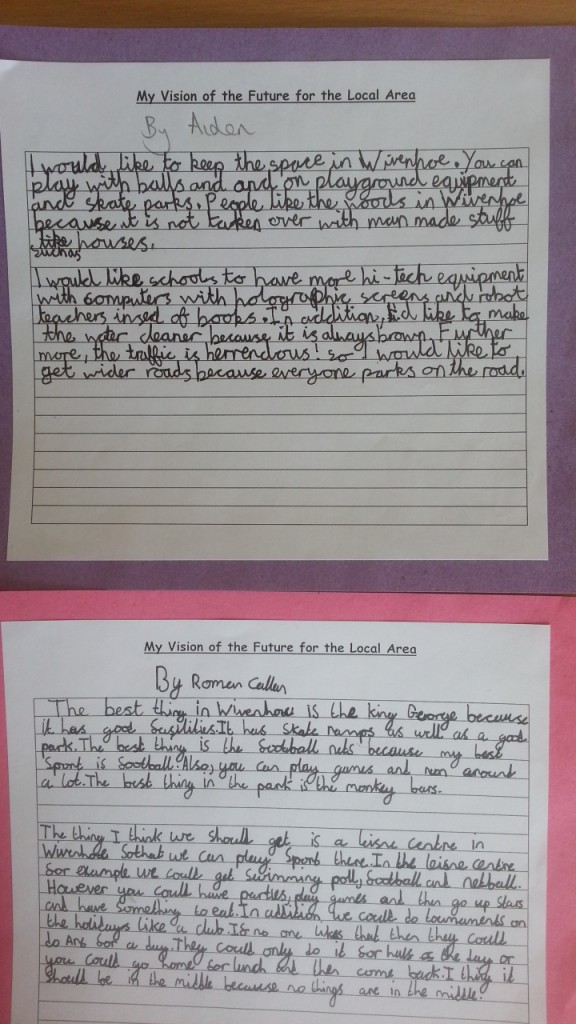 My Vision of the Future for the Local Area
By Aiden
I would like to keep the space in Wivenhoe. You can
play with balls and and on playground equipment
and skate parks. People like the woods in Wivenhoe
because it is not taken over with man made stuff
like houses.
suchas
I would like schools to have more hi-tech equipment
with computers with holographic screens and robot
teachers insed of books. In addition, I'd like to make
the water cleaner because it is always brown. Further
more, the traffic is herrendous! so I would like to
get wider roads because everyone parks on the road.
My Vision of the Future for the Local Area
By Roman Callan
The best thing in Wivenhoe is the king George because
it has good fasilities. It has skate ramps as well as a good
park. The best thing is the football nets because my best
sport is football. Also, you can play games and run around
a lot. The best thing in the park is the monkey bars.
The thing I think we should get is a leisne centre in
Wivenhoe sothat we can play sport there. In the leisne centre
for example we could get swimming poll, football and netball.
However you could have parties, play games and then go up stairs
and have something to eat. In addition we could do tournaments on
the holidays like a club. If no one likes that then they could
do Art for a day. They could only do it for half of the day or
you could go home for lunch and then come back. I think it
should be in the middle because no things are in the middle.